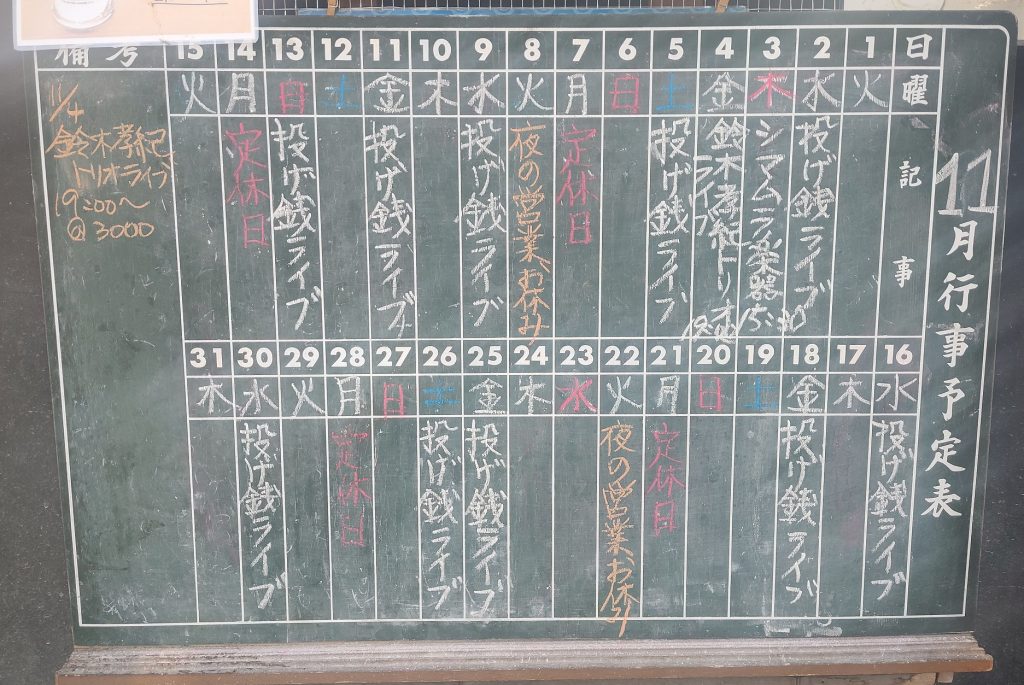 11月行事予定表
日 曜 記事
1 火
2 水 投げ銭ライブ
3 木 シマムラ楽器 15:30
4 金 鈴木孝紀トリオ ライブ
5 土 投げ銭ライブ
6 日
7 月 定休日
8 火 夜の営業、お休み
9 水 投げ銭ライブ
10 木
11 金 投げ銭ライブ
12 土
13 日 投げ銭ライブ
14 月 定休日
15 火
備考
11/4
鈴木孝紀
トリオライブ
19:00〜
@3000
16 水 投げ銭ライブ
17 木
18 金 投げ銭ライブ
19 土
20 日
21 月 定休日
22 火 夜の営業、お休み
23 水
24 木
25 金 投げ銭ライブ
26 土 投げ銭ライブ
27 日
28 月 定休日
29 火
30 水 投げ銭ライブ
31 木